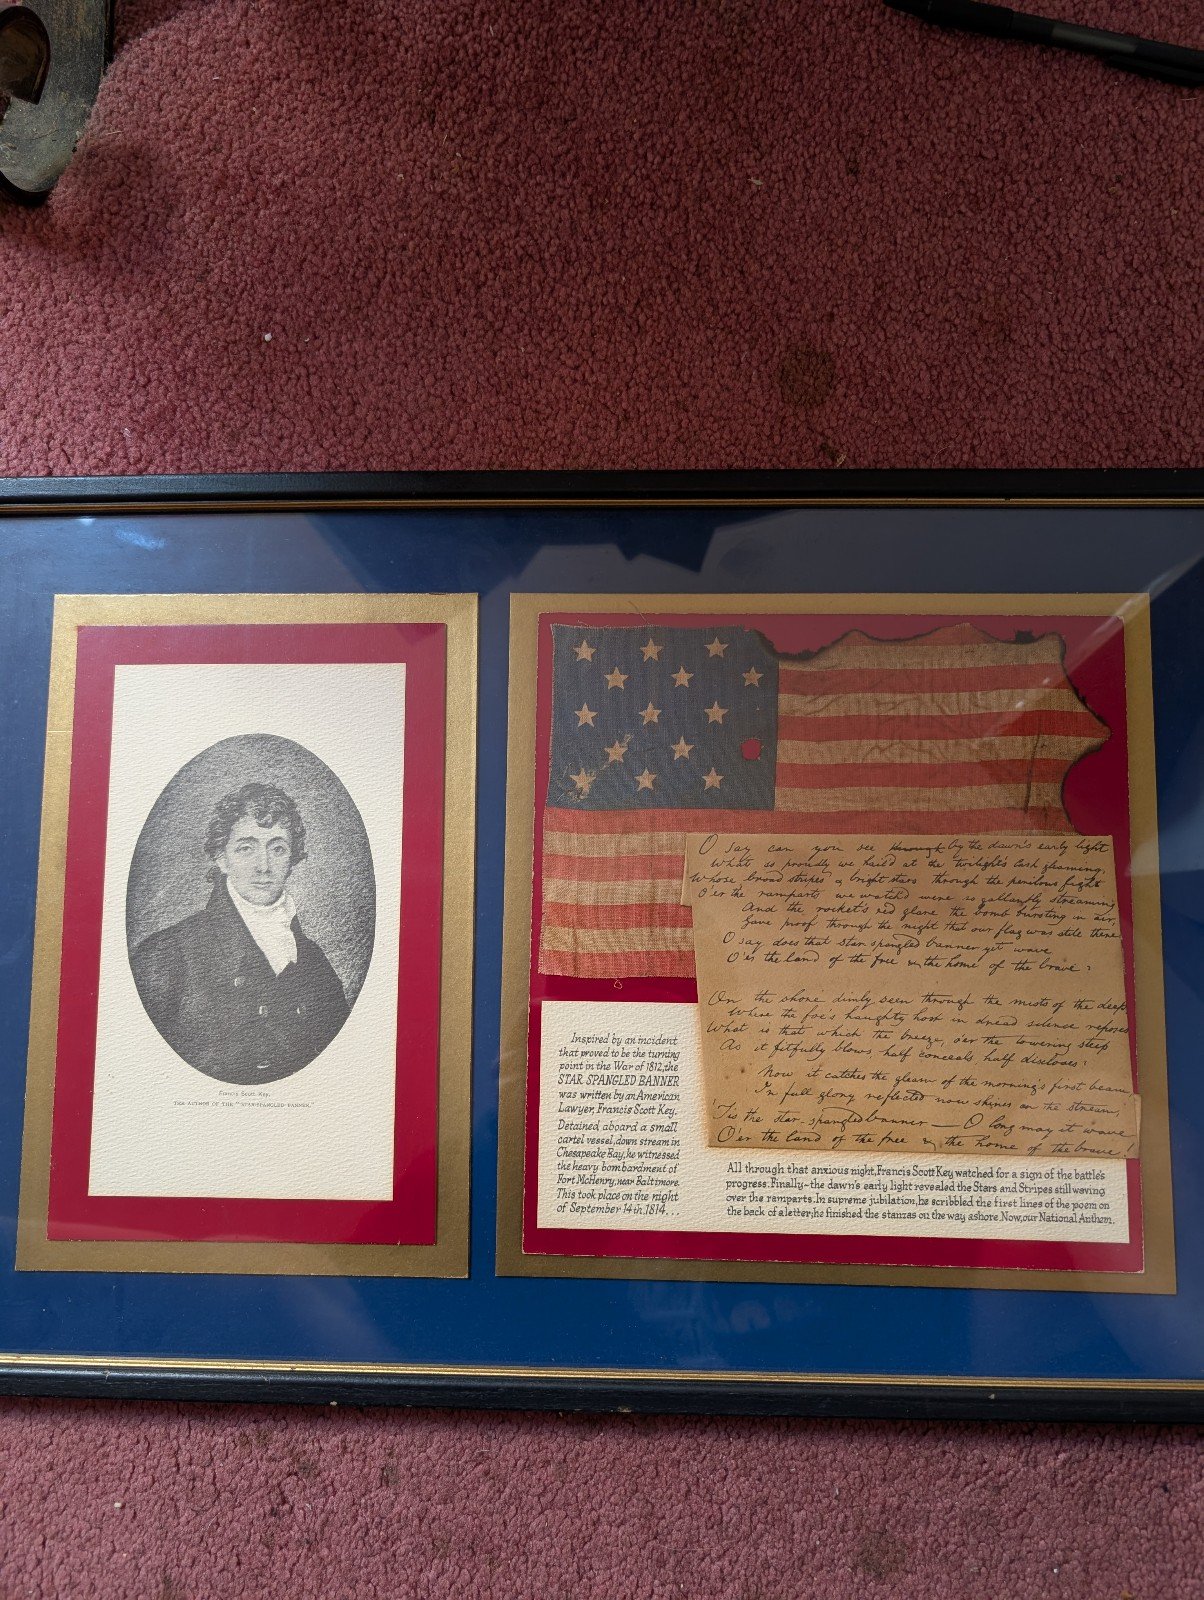 Francis Scott Key,
THE AUTHOR OF THE "STAR-SPANGLED BANNER."
O say can you see through by the dawn's early light
What so proudly we hail'd at the twilight's last gleaming,
Whose broad stripes & bright stars through the perilous fight
O'er the ramparts we watch'd were so gallantly streaming
And the rocket's red glare the bomb bursting in air,
Gave proof through the night that our flag was still there
O say does that star spangled banner yet wave
O'er the land of the free & the home of the brave?
On the shore dimly seen through the mists of the deep,
Where the foe's haughty host in dread silence reposes
What is that which the breeze, o'er the towering steep
As it fitfully blows, half conceals half discloses?
Now it catches the gleam of the morning's first beam,
In full glory reflected now shines on the stream,
'Tis the star-spangled banner — O long may it wave
O'er the land of the free & the home of the brave!
Inspired by an incident
that proved to be the turning
point in the War of 1812, the
STAR SPANGLED BANNER
was written by an American
Lawyer, Francis Scott Key.
Detained aboard a small
cartel vessel, down stream in
Chesapeake Bay, he witnessed
the heavy bombardment of
Fort McHenry, near Baltimore.
This took place on the night
of September 14th, 1814...
All through that anxious night, Francis Scott Key watched for a sign of the battle's
progress. Finally~the dawn's early light revealed the Stars and Stripes still waving
over the ramparts. In supreme jubilation, he scribbled the first lines of the poem on
the back of a letter; he finished the stanzas on the way ashore. Now, our National Anthem.